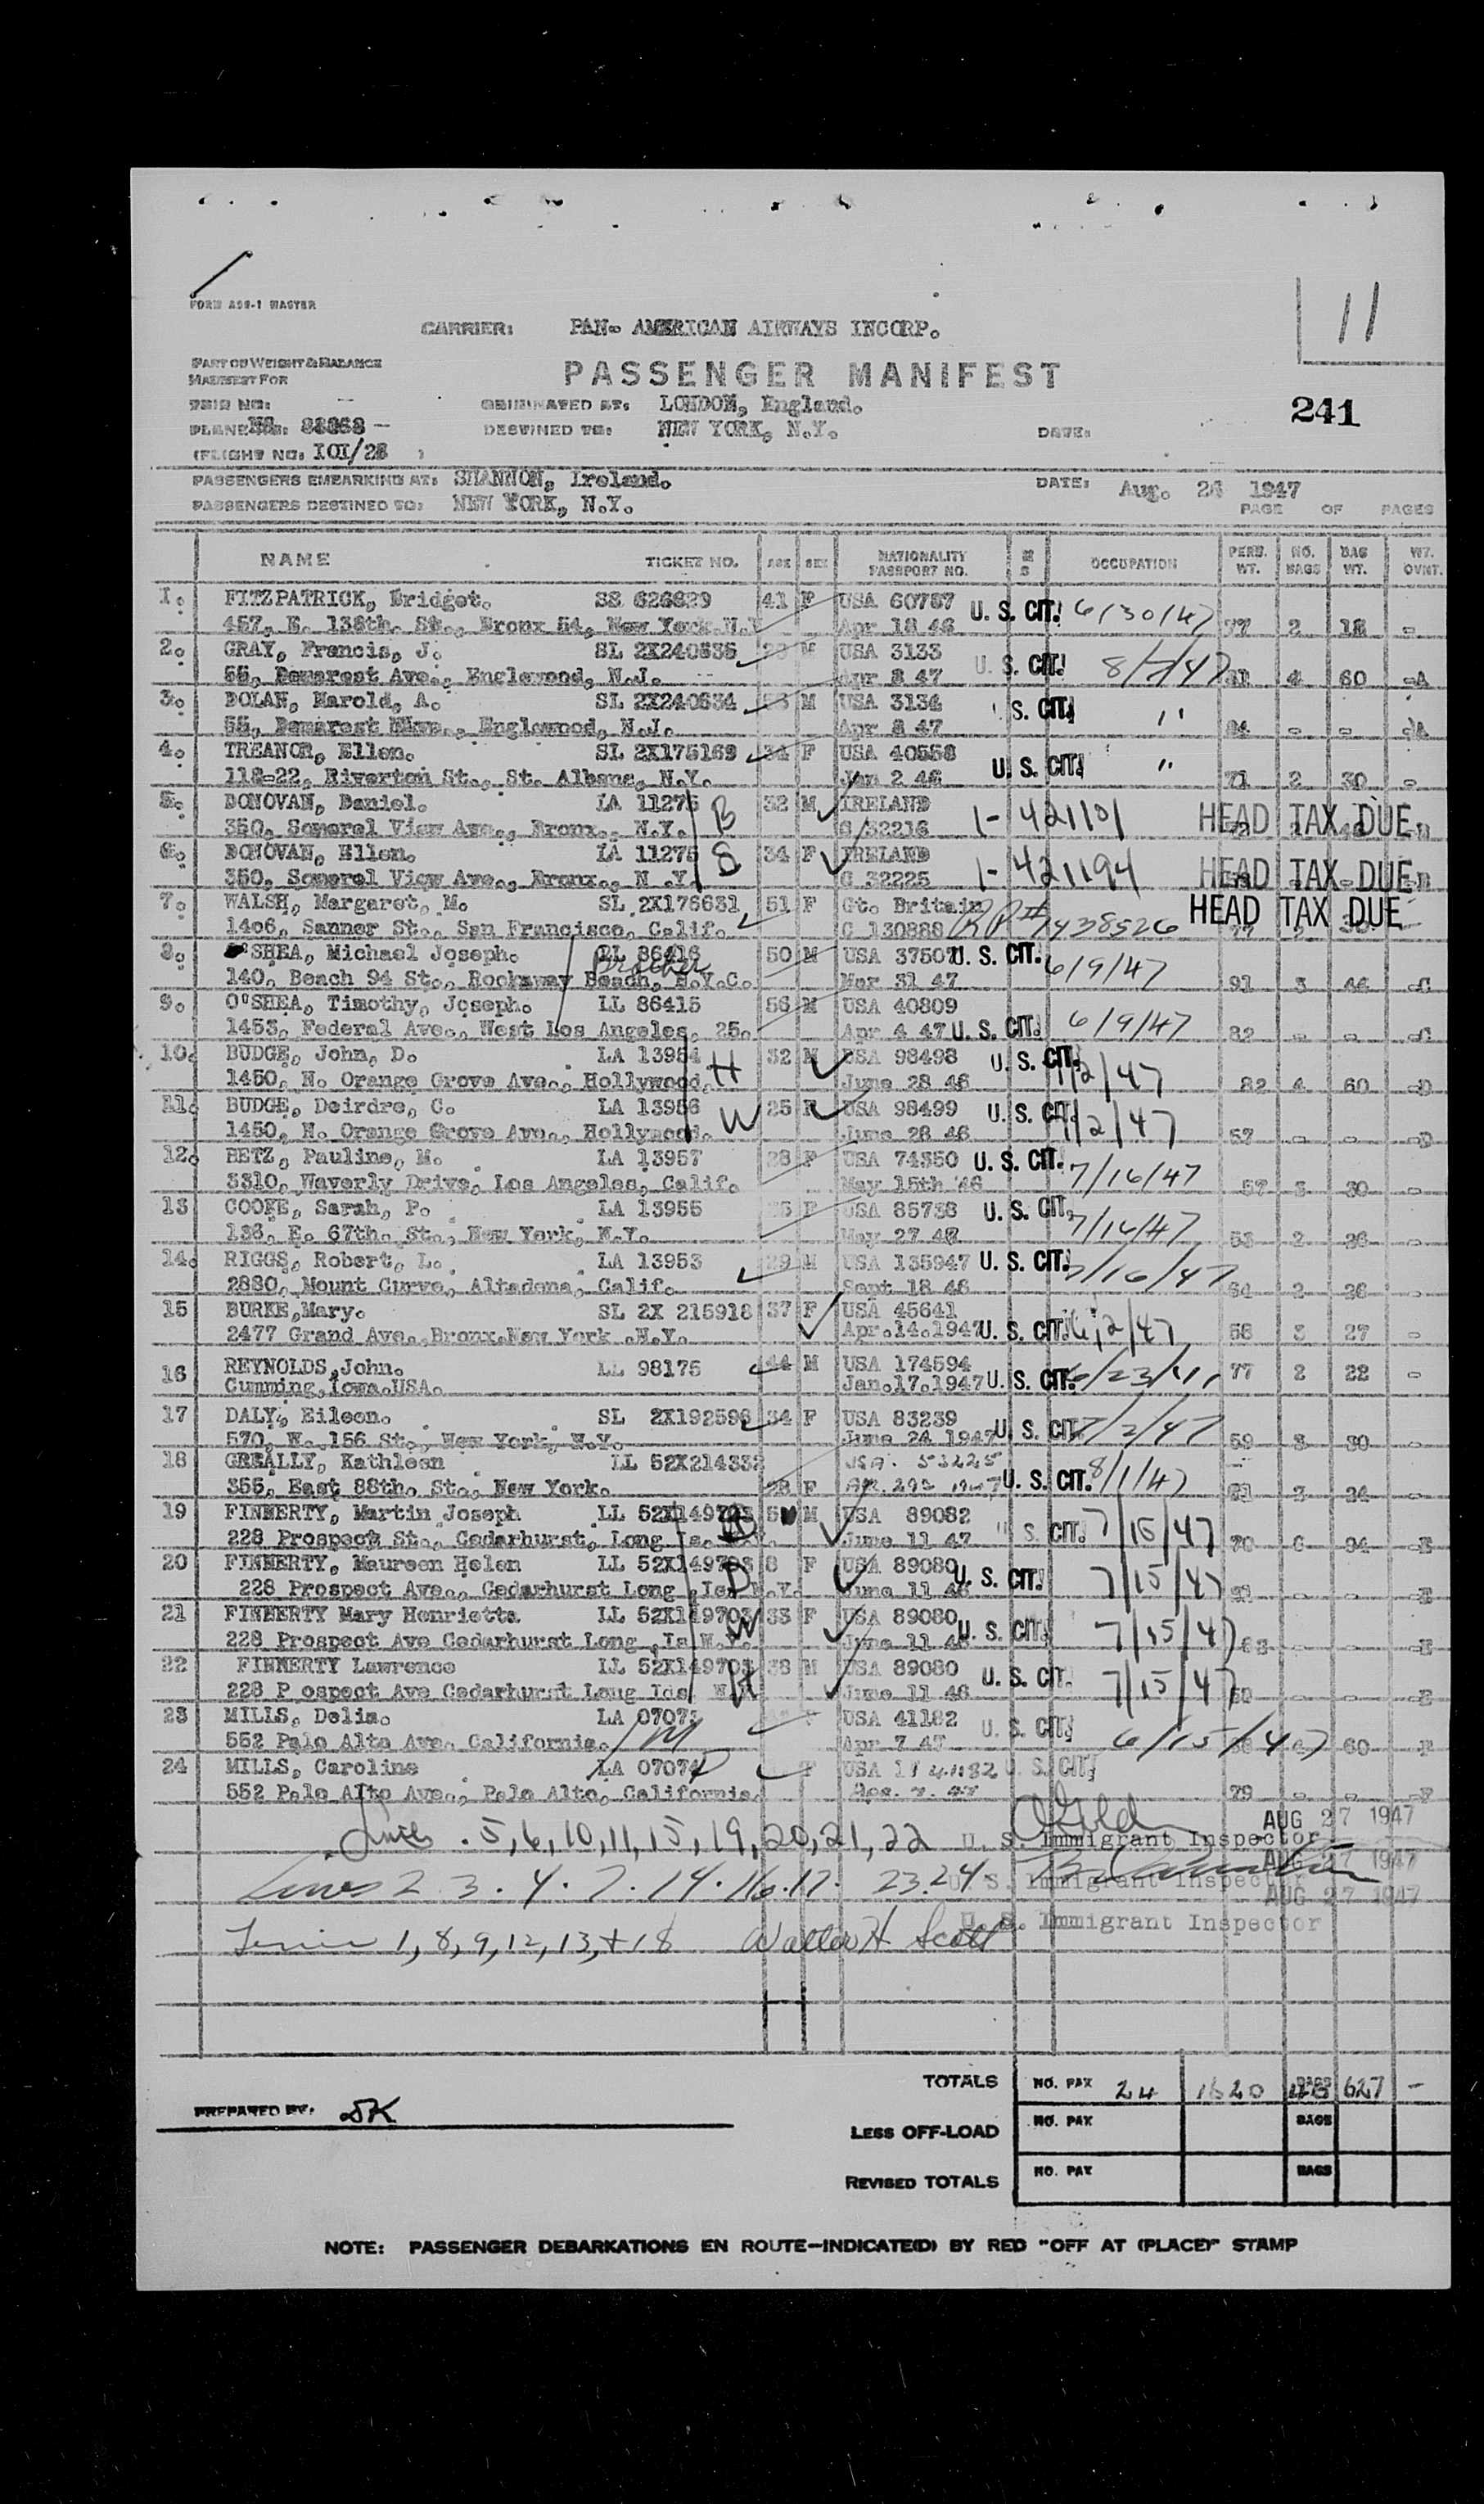 FORM ASS-1 MASTER
11
CARRIER: PAN- AMERICAN AIRWAYS INCORP.
PART OF WEIGHT & BALANCE
MANIFEST FOR
PASSENGER MANIFEST
TRIP NO: -
ORIGINATED AT: LONDON, England.
241
PLANE NO:
DESTINED TO: NEW YORK, N.Y.
DATE:
(FLIGHT NO: 101/26 )
PASSENGERS EMBARKING AT: SHANNON, Ireland.
DATE: Aug. 26 1947
PASSENGERS DESTINED TO: NEW YORK, N.Y.
PAGE OF PAGES
NAME TICKET NO. AGE SEX NATIONALITY PASSPORT NO. M S OCCUPATION PERS. WT. NO. BAGS BAG WT. WT. OVNT.
1. FITZPATRICK, Bridget. SS 626829 41 F USA 60787 U. S. CIT. 6/30/47
457, E. 138th. St., Bronx 54, New York N.Y Apr 18 46 77 2 18 -
2. GRAY, Francis, J. SL 2X240535 M USA 3133 U. S. CIT. 8/7/47
55, Demarest Ave., Englewood, N.J. Apr 8 47 4 60 -A
3. DOLAN, Harold, A. SL 2X240534 M USA 3134 S. CIT. "
55, Demarest Ave., Englewood, N.J. Apr 8 47 84 - - -A
4. TREANOR, Ellen. SL 2X175169 34 F USA 40558 U. S. CIT. "
118-22, Riverton St., St. Albans, N.Y. Jan 2 46 71 2 30 -
5. DONOVAN, Daniel. LA 11276 B 32 M IRELAND 1-421101 HEAD TAX DUE
350, Somerel View Ave., Bronx., N.Y. C 32216
6. DONOVAN, Ellen. LA 11275 S 34 F IRELAND 1-421194 HEAD TAX DUE
350, Somerel View Ave., Bronx., N.Y. C 32225
7. WALSH, Margaret, M. SL 2X176631 51 F Gt. Britain HEAD TAX DUE
1406, Sanner St., San Francisco, Calif. C 130888 RP# 1438526 77
8. O'SHEA, Michael Joseph. LL 86416 50 M USA 37507 U. S. CIT. 6/9/47
140, Beach 94 St., Rockaway Beach, N.Y.C. Brother Mar 31 47 91 3 44 -C
9. O'SHEA, Timothy, Joseph. LL 86415 56 M USA 40809
1453, Federal Ave., West Los Angeles, 25. Apr 4 47 U. S. CIT. 6/9/47 82 - - -C
10. BUDGE, John, D. LA 13954 H 32 M USA 98498 U. S. CIT.
1450, N. Orange Grove Ave., Hollywood, June 28 46 7/2/47 82 4 60 -D
11. BUDGE, Deirdre, C. LA 13956 W 25 F USA 98499 U. S. CIT.
1450, N. Orange Grove Ave., Hollywood. June 28 46 7/2/47 57 - - -D
12. BETZ, Pauline, M. LA 13957 28 F USA 74350 U. S. CIT. 7/16/47
3310, Waverly Drive, Los Angeles, Calif. May 15th 46 57 3 30 -
13 COOKE, Sarah, P. LA 13955 F USA 85738 U. S. CIT. 7/16/47
136, E. 67th. St., New York, N.Y. May 27 46 53 2 26 -
14. RIGGS, Robert, L. LA 13953 29 M USA 135947 U. S. CIT. 7/16/47
2880, Mount Curve, Altadena, Calif. Sept 18 46 64 2 26 -
15 BURKE, Mary. SL 2X 215918 37 F USA 45641
2477 Grand Ave., Bronx.New York .N.Y. Apr.14.1947 U. S. CIT. 6/2/47 58 3 27 -
16 REYNOLDS, John. LL 98175 44 M USA 174594
Cumming, Iowa.USA. Jan.17.1947 U. S. CIT. 6/23/ 77 2 22 -
17 DALY, Eileen. SL 2X192596 34 F USA 83239
570, W. 156 St., New York, N.Y. June 24 1947 U. S. CIT. 7/2/47 59 3 30 -
18 GREALLY, Kathleen LL 52X214332 USA. 53225
355, East 88th. St., New York. 28 F U. S. CIT. 8/1/47 3 34 -
19 FINNERTY, Martin Joseph LL 52X149703 M USA 89082 S. CIT. 7/15/47
228 Prospect St., Cedarhurst, Long Is. June 11 47 70 6 94 -E
20 FINNERTY, Maureen Helen LL 52X149703 D 8 F USA 89080 U. S. CIT. 7/15/47
228 Prospect Ave., Cedarhurst Long Isd N.Y. June 11 46 - - -E
21 FINNERTY Mary Henrietta LL 52X149703 W 33 F USA 89080 U. S. CIT. 7/15/47
228 Prospect Ave Cedarhurst Long Is N.Y. June 11 46 - - -E
22 FINNERTY Lawrence LL 52X149703 H 38 M USA 89080 U. S. CIT. 7/15/47
228 P ospect Ave Cedarhurst Long Ids June 11 46 - - -E
23 MILLS, Delia. LA 07073 M USA 41182 U. S. CIT.
552 Palo Alto Ave. California. Apr 7 47 6/15/47 60 -F
24 MILLS, Caroline LA 07074 D F USA U. S. CIT.
552 Palo Alto Ave., Palo Alto, California. 79 - - -F
AUG 27 1947
Lines 5,6,10,11,15,19,20,21,22 U. S. Immigrant Inspector
AUG 27 1947
Lines 2 3. 4. 7. 14. 16. 17. 23.24. U. S. Immigrant Inspector
AUG 27 1947
U. S. Immigrant Inspector
1, 8, 9, 12, 13, + 18 Walter H Scott
TOTALS NO. PAX 24 1620 BAGS 627 -
PREPARED BY: DK
LESS OFF-LOAD NO. PAX BAGS
REVISED TOTALS NO. PAX BAGS
NOTE: PASSENGER DEBARKATIONS EN ROUTE—INDICATE(D) BY RED "OFF AT (PLACE)" STAMP